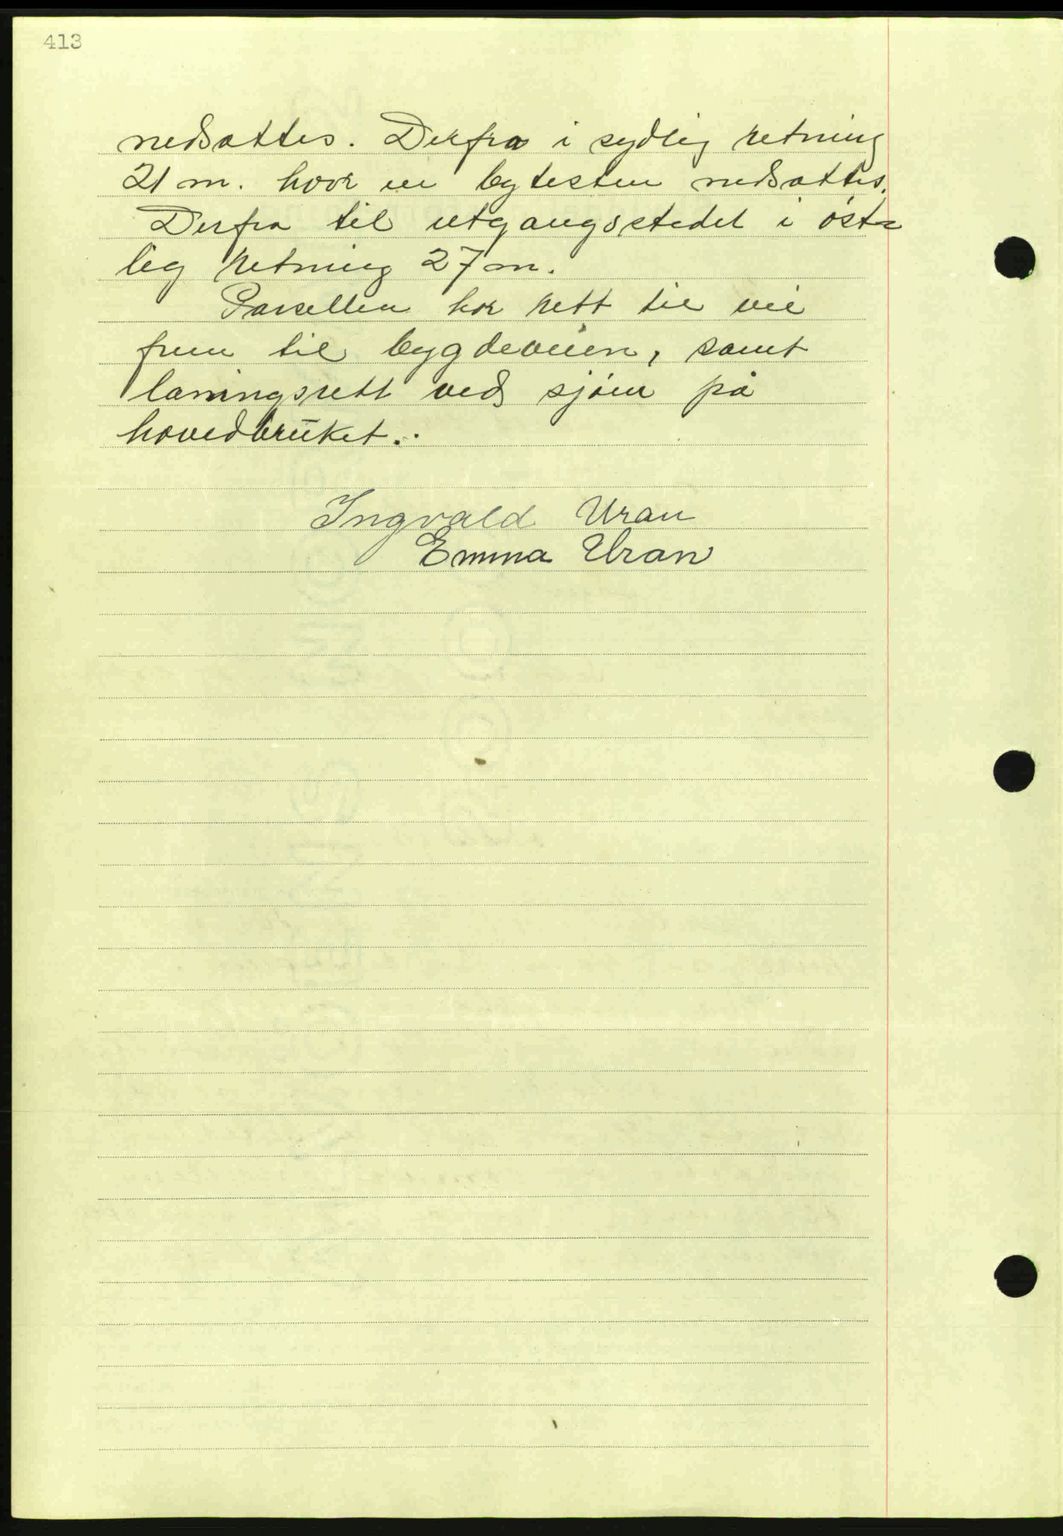 413
nedsattes. Derfra i sydlig retning
21 m. hvor en bytesten nedsattes.
Derfra til utgangsstedet i øst-
lig retning 27 m.
Parsellen har rett til vei
frem til bygdeveien, samt
lanningsrett ved sjøen på
hovedbruket.
Ingvald Uran
Emma Uran